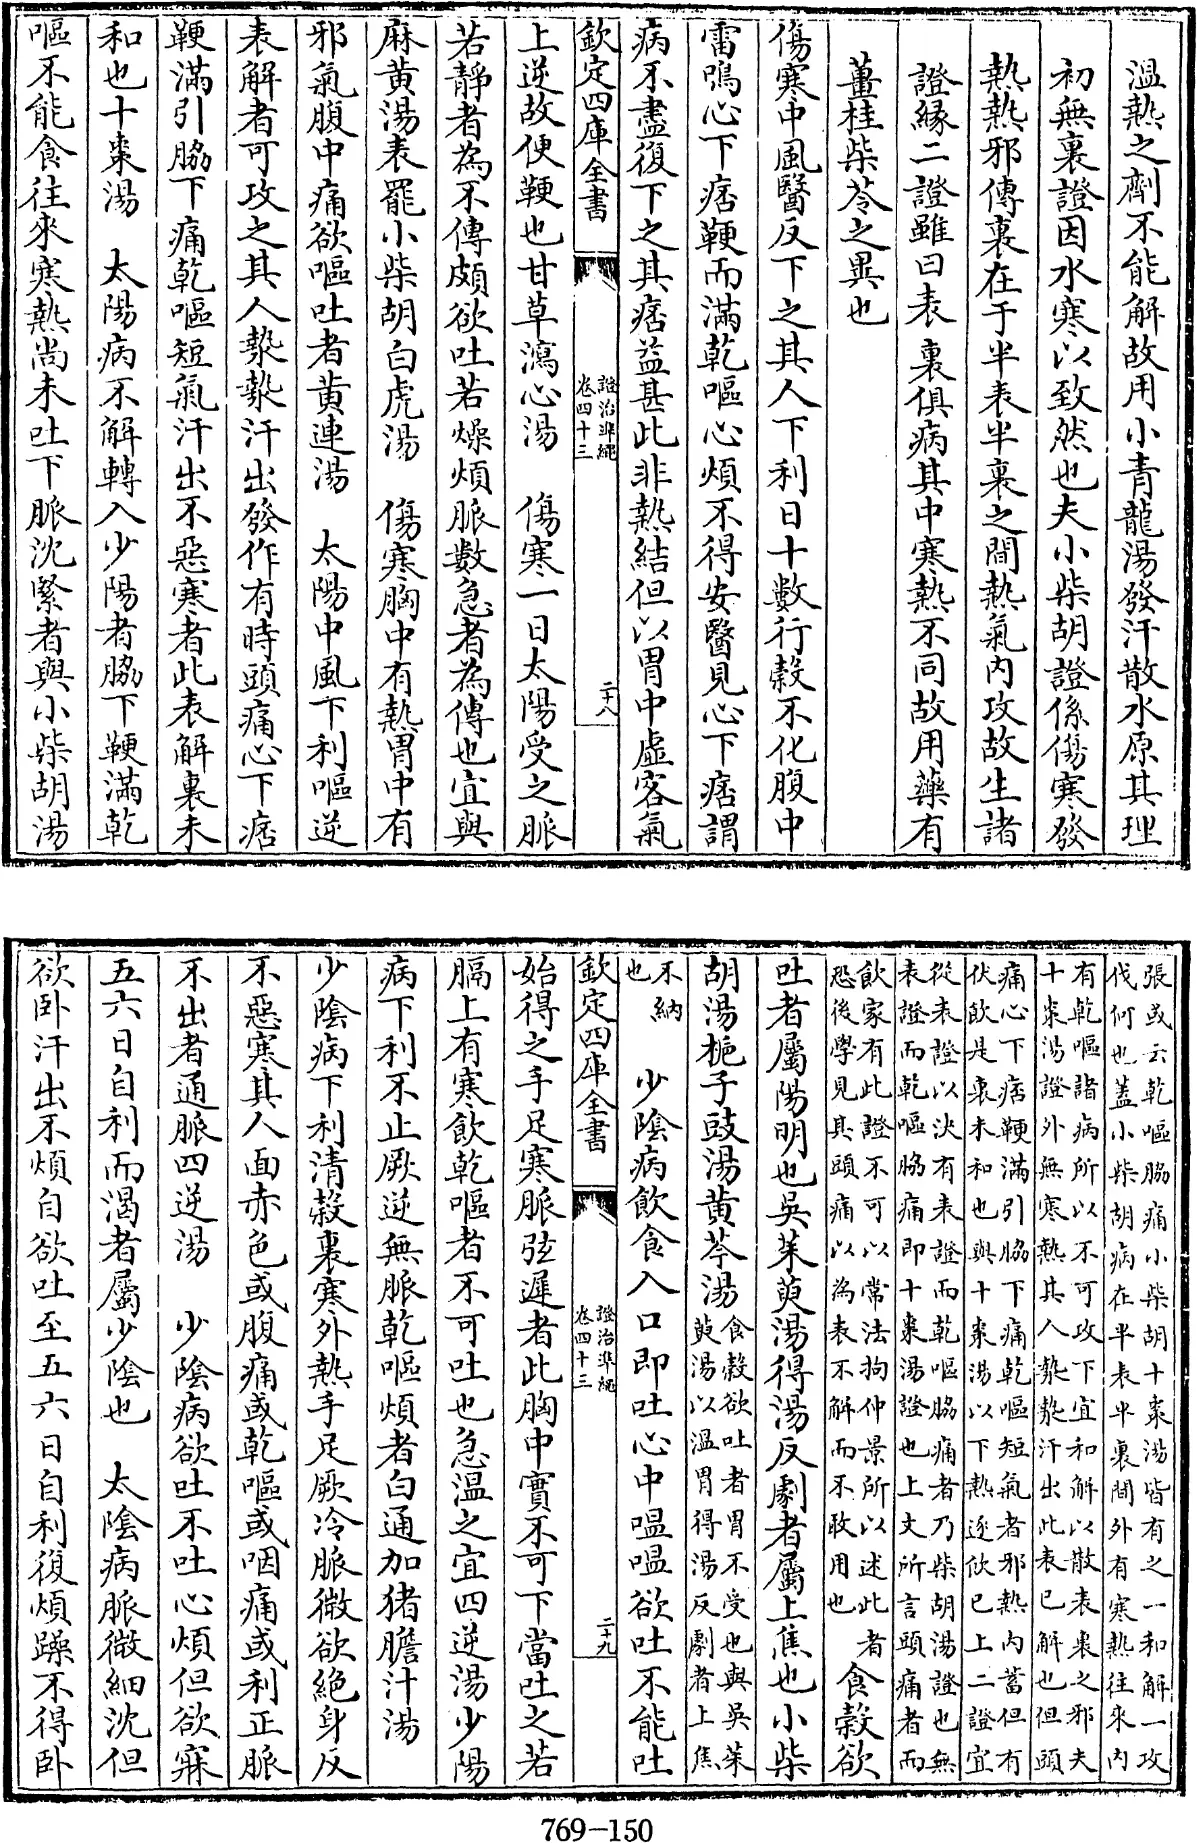 溫熱之劑不能解故用小青龍湯發汗散水原其理
初無裏證因水寒以致然也夫小柴胡證係傷寒發
熱熱邪傳裏在于半表半裏之間熱氣内攻故生諸
證緣二證雖曰表裏俱病其中寒熱不同故用藥有
薑桂柴苓之異也
傷寒中風醫反下之其人下利日十數行穀不化腹中
雷鳴心下痞鞕而滿乾嘔心煩不得安醫見心下痞謂
病不盡復下之其痞益甚此非熱結但以胃中虛客氣
欽定四庫全書
證治準繩
卷四十三
二十八
上逆故便鞕也甘草瀉心湯 傷寒一日太陽受之脈
若靜者為不傳頗欲吐若燥煩脈數急者為傳也宜與
麻黄湯表罷小柴胡白虎湯 傷寒胸中有熱胃中有
邪氣腹中痛欲嘔吐者黄連湯 太陽中風下利嘔逆
表解者可攻之其人漐漐汗出發作有時頭痛心下痞
鞕滿引脇下痛乾嘔短氣汗出不惡寒者此表解裏未
和也十棗湯 太陽病不解轉入少陽者脇下鞕滿乾
嘔不能食往來寒熱尚未吐下脈沈緊者與小柴胡湯
張或云乾嘔脇痛小柴胡十棗湯皆有之一和解一攻
伐何也蓋小柴胡病在半表半裏間外有寒熱往來内
有乾嘔諸病所以不可攻下宜和解以散表裏之邪夫
十棗湯證外無寒熱其人漐漐汗出此表已解也但頭
痛心下痞鞕滿引脇下痛乾嘔短氣者邪熱内蓄但有
伏飲是裏未和也與十棗湯以下熱逐飲已上二證宜
從表證以決有表證而乾嘔脇痛者乃柴胡湯證也無
表證而乾嘔脇痛即十棗湯證也上文所言頭痛者而
飲家有此證不可以常法拘仲景所以述此者
恐後學見其頭痛以為表不解而不敢用也
食穀欲
吐者屬陽明也吳茱萸湯得湯反劇者屬上焦也小柴
胡湯梔子豉湯黄芩湯
食穀欲吐者胃不受也與吳茱
萸湯以溫胃得湯反劇者上焦
不納
也
少陰病飲食入口即吐心中嗢嗢欲吐不能吐
欽定四庫全書
證治準繩
卷四十三
二十九
始得之手足寒脈弦遲者此胸中實不可下當吐之若
膈上有寒飲乾嘔者不可吐也急溫之宜四逆湯少陽
病下利不止厥逆無脈乾嘔煩者白通加猪膽汁湯
少陰病下利清穀裏寒外熱手足厥冷脈微欲絶身反
不惡寒其人面赤色或腹痛或乾嘔或咽痛或利正脈
不出者通脈四逆湯 少陰病欲吐不吐心煩但欲寐
五六日自利而渴者屬少陰也 太陰病脈微細沈但
欲卧汗出不煩自欲吐至五六日自利復煩躁不得卧
769-150